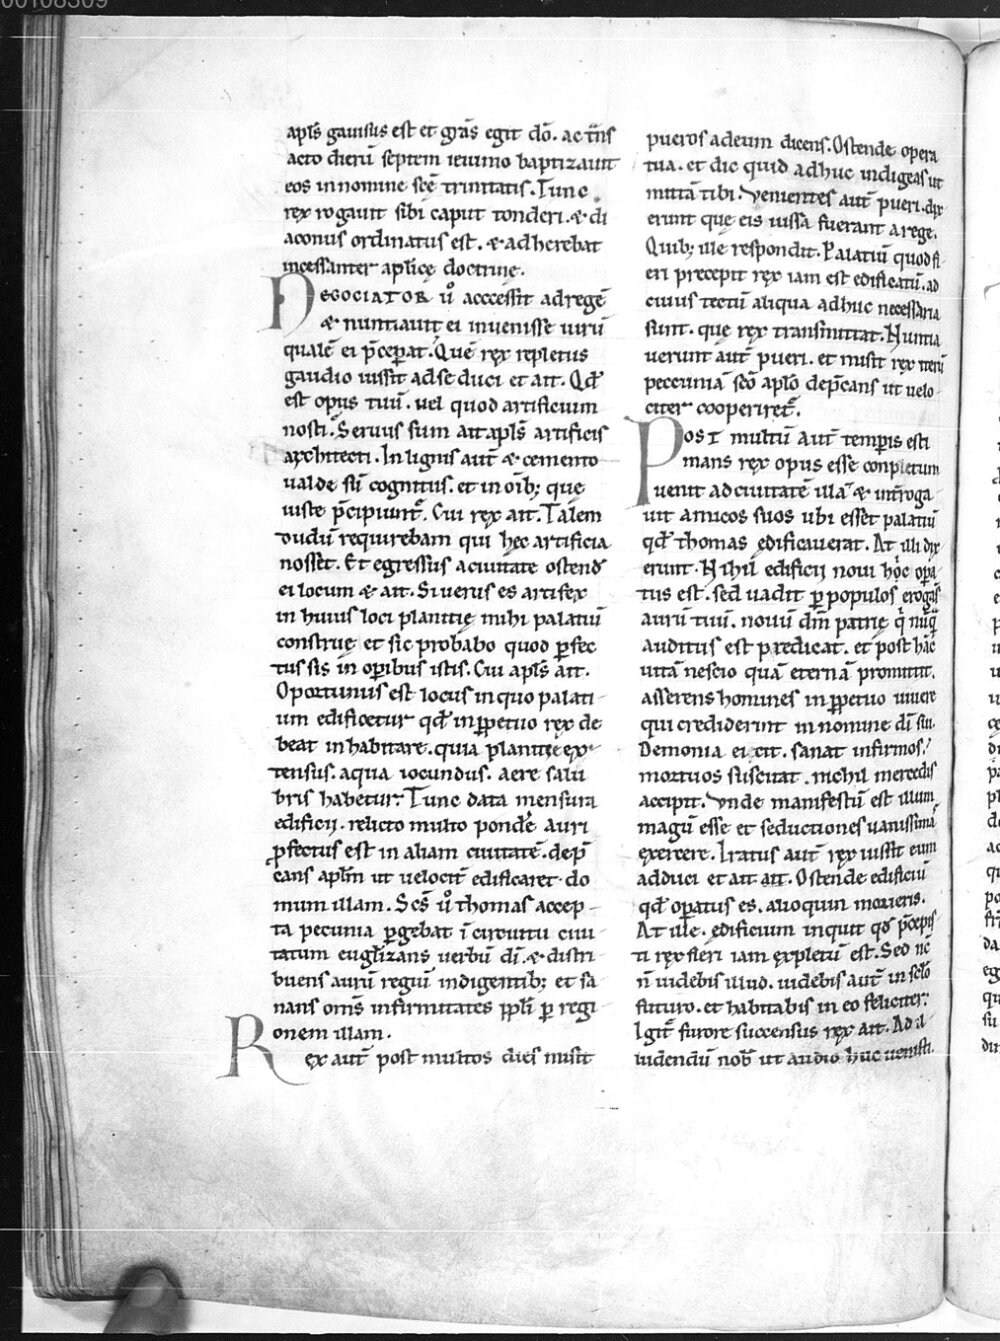 00108309
apl̄s gauisus est et gr̄as egit dō. ac tn̄s
acto dierū septem ieiunio baptizauit
eos in nomine scē trinitatis. Tunc
rex rogauit sibi caput tonderi. & di
aconus ordinatus est. & adherebat
incessanter aplicę doctrinę.
NEGOCIATOR u͛o acccessit ad regē
& nuntiauit ei inuenisse uirū
qualē ei p̄ceperat. Quē rex repletus
gaudio iussit ad se duci et ait. Qd̄
est opus tuū. uel quod artificium
nosti. Seruus sum ait apl̄s artificis
architecti. In lignis aut̄ & cemento
ualde sū cognitus. et in oīb; que
iuste p̄cipiunt᷑. Cui rex ait. Talem
dudū requirebam qui hęc artificia
nosset. Et egressus a ciuitate ostend̄
ei locum & ait. Si uerus es artifex
in huius loci planitię mihi palatiū
construe et sic probabo quod ꝑfec
tus sis in oꝑibus istis. Cui apl̄s ait.
Oportunus est locus in quo palati
um edificetur qd̄ in ꝑpetuo rex de
beat inhabitare. quia planitie ex
tensus. aqua iocundus. aere salu
bris habetur. Tunc data mensura
edificij. relicto multo pond̄e auri
ꝓfectus est in aliam ciuitatē. dep̄
cans apl̄m ut uelocit̄ edificaret do
mum illam. Scs̄ u͛o thomas accep
ta pecunia ꝑgebat ī circuitu ciui
tatum eugl̄izans uerbū dī. & distri
buens aurū regiū indigentib; et sa
nans om̄s infirmitates ppl̄i ꝑ regi
onem illam.
Rex aut̄ post multos dies misit
pueros ad eum dicens. Ostende opera
tua. et dic quid adhuc indigeas ut
mittā tibi. Venientes aut̄ pueri. dix
erunt que eis iussa fuerant a rege.
Quib; ille respondit. Palatiū quod fi
eri precepit rex iam est edificatū. ad
cuius tectū aliqua adhuc necessaria
sunt. que rex transmittat. Nuntia
uerunt aut̄ pueri. et misit rex iterū
peccuniā sc̄o aplo dep̄cans ut uelo
citer cooperiret᷑.
POST multū aut̄ temporis esti
mans rex opus esse conpletum
uenit ad ciuitatē illā & int̄roga
uit amicos suos ubi esset palatiū
qd̄ thomas edificauerat. At illi dix
erunt. Nihil edificij noui h͛c oꝑa
tus est. sed uadit ꝑ populos erogās
aurū tuū. nouū dm̄ patrie q̇ nūq̄
auditus est predicat. et post hāc
uitā nescio quā eternā promittit.
asserens homines in ꝑpetuo uiuere
qui crediderint in nomine dī sui.
Demonia eicit. sanat infirmos.
mortuos suscitat. nichil mercedis
accipit. Vnde manifestū est illum
magū esse et seductiones uanissimā
exercere. Iratus aut̄ rex iussit eum
adduci et ait ait. Ostende edificiū
qd̄ oꝑatus es. alioquin morieris.
At ille. edificium inquit qd̄ p̄cepis
ti rex fieri iam expletū est. Sed nc̄
n̄ uidebis illud. uidebis aut̄ in sc̄lo
futuro. et habitabis in eo feliciter.
Igit᷑ furore succensus rex ait. Ad il
ludendū nob̄ ut audio huc uenisti.